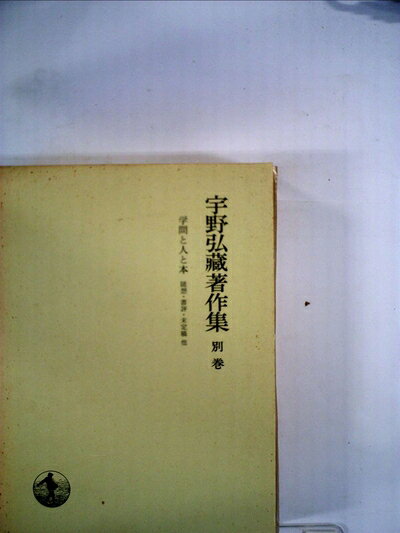 宇野弘蔵著作集 別巻
学問と人と本 随想・書評・未定稿 他